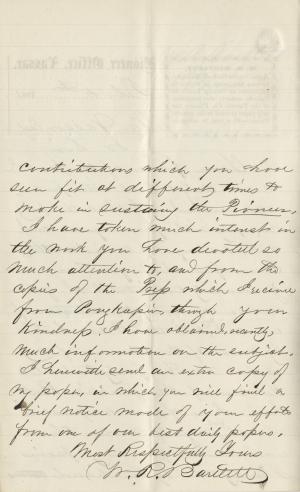 Pioneer Office, Vassar,
contributions which you have
seen fit at different times to
make in sustaining the Pioneer.
I have taken much interest in
the work you have devoted so
much attention to, and from the
copies of the Press which I receive
from Poughkeepsie, through your
kindness, I have obtained, recently,
much information on the subject.
I herewith send an extra copy of
my paper, in which you will find a
brief notice made of your efforts
from one of our best daily papers.
Most Respectfully Yours
W. R. Bartlett